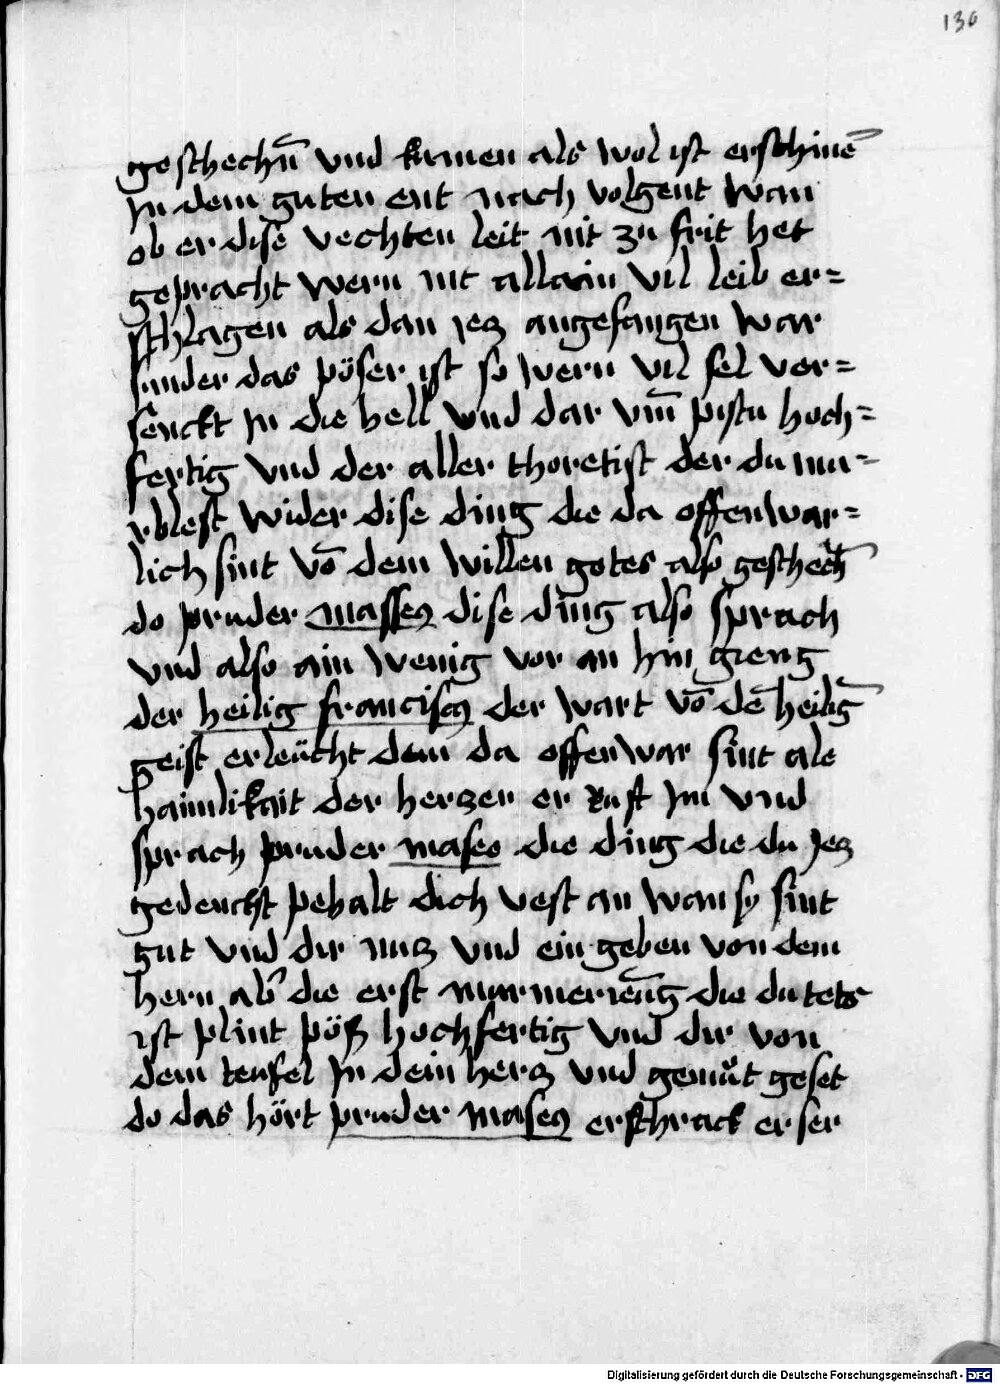 136
geschechn̄ vnd kumen als wol ist erschinē
Jn dem guten ent nach volgent wan
ob er dise vechten leit nit zu frit het
gepracht wern nit allain vil leib er=
schlagen als dan jez angefangen war
sunder das pöser ist so wern vil sel ver=
senckt Jn die hell vnd dar vm̄ pistu hoch=
fertig vnd der aller thoretist der du mu=
rblest wider dise ding die da offenwar=
lich sint vō dem willen gotes also geschech̄
do pruder massey dise ding also sprach
vnd also ain wenig vor an hin gieng
der heilig franciscy der wart vō dē heiliḡ
geist erleücht dem da offenwar sint ale
haimlikait der herzen er Ruft Jm vnd
sprach pruder maseo die ding die du Jez
gedenckst pehalt dich vest an wan sy sint
gut vnd dir nuz vnd ein geben von dem
hern ab̄ die erst murmerieūg die du tets
ist plint pöß hochfertig vnd dir von
dem teufel Jn dein herz vnd gemüt geset
do das hört pruder masey erschrack er ser
Digitalisierung gefördert durch die Deutsche Forschungsgemeinschaft - DFG